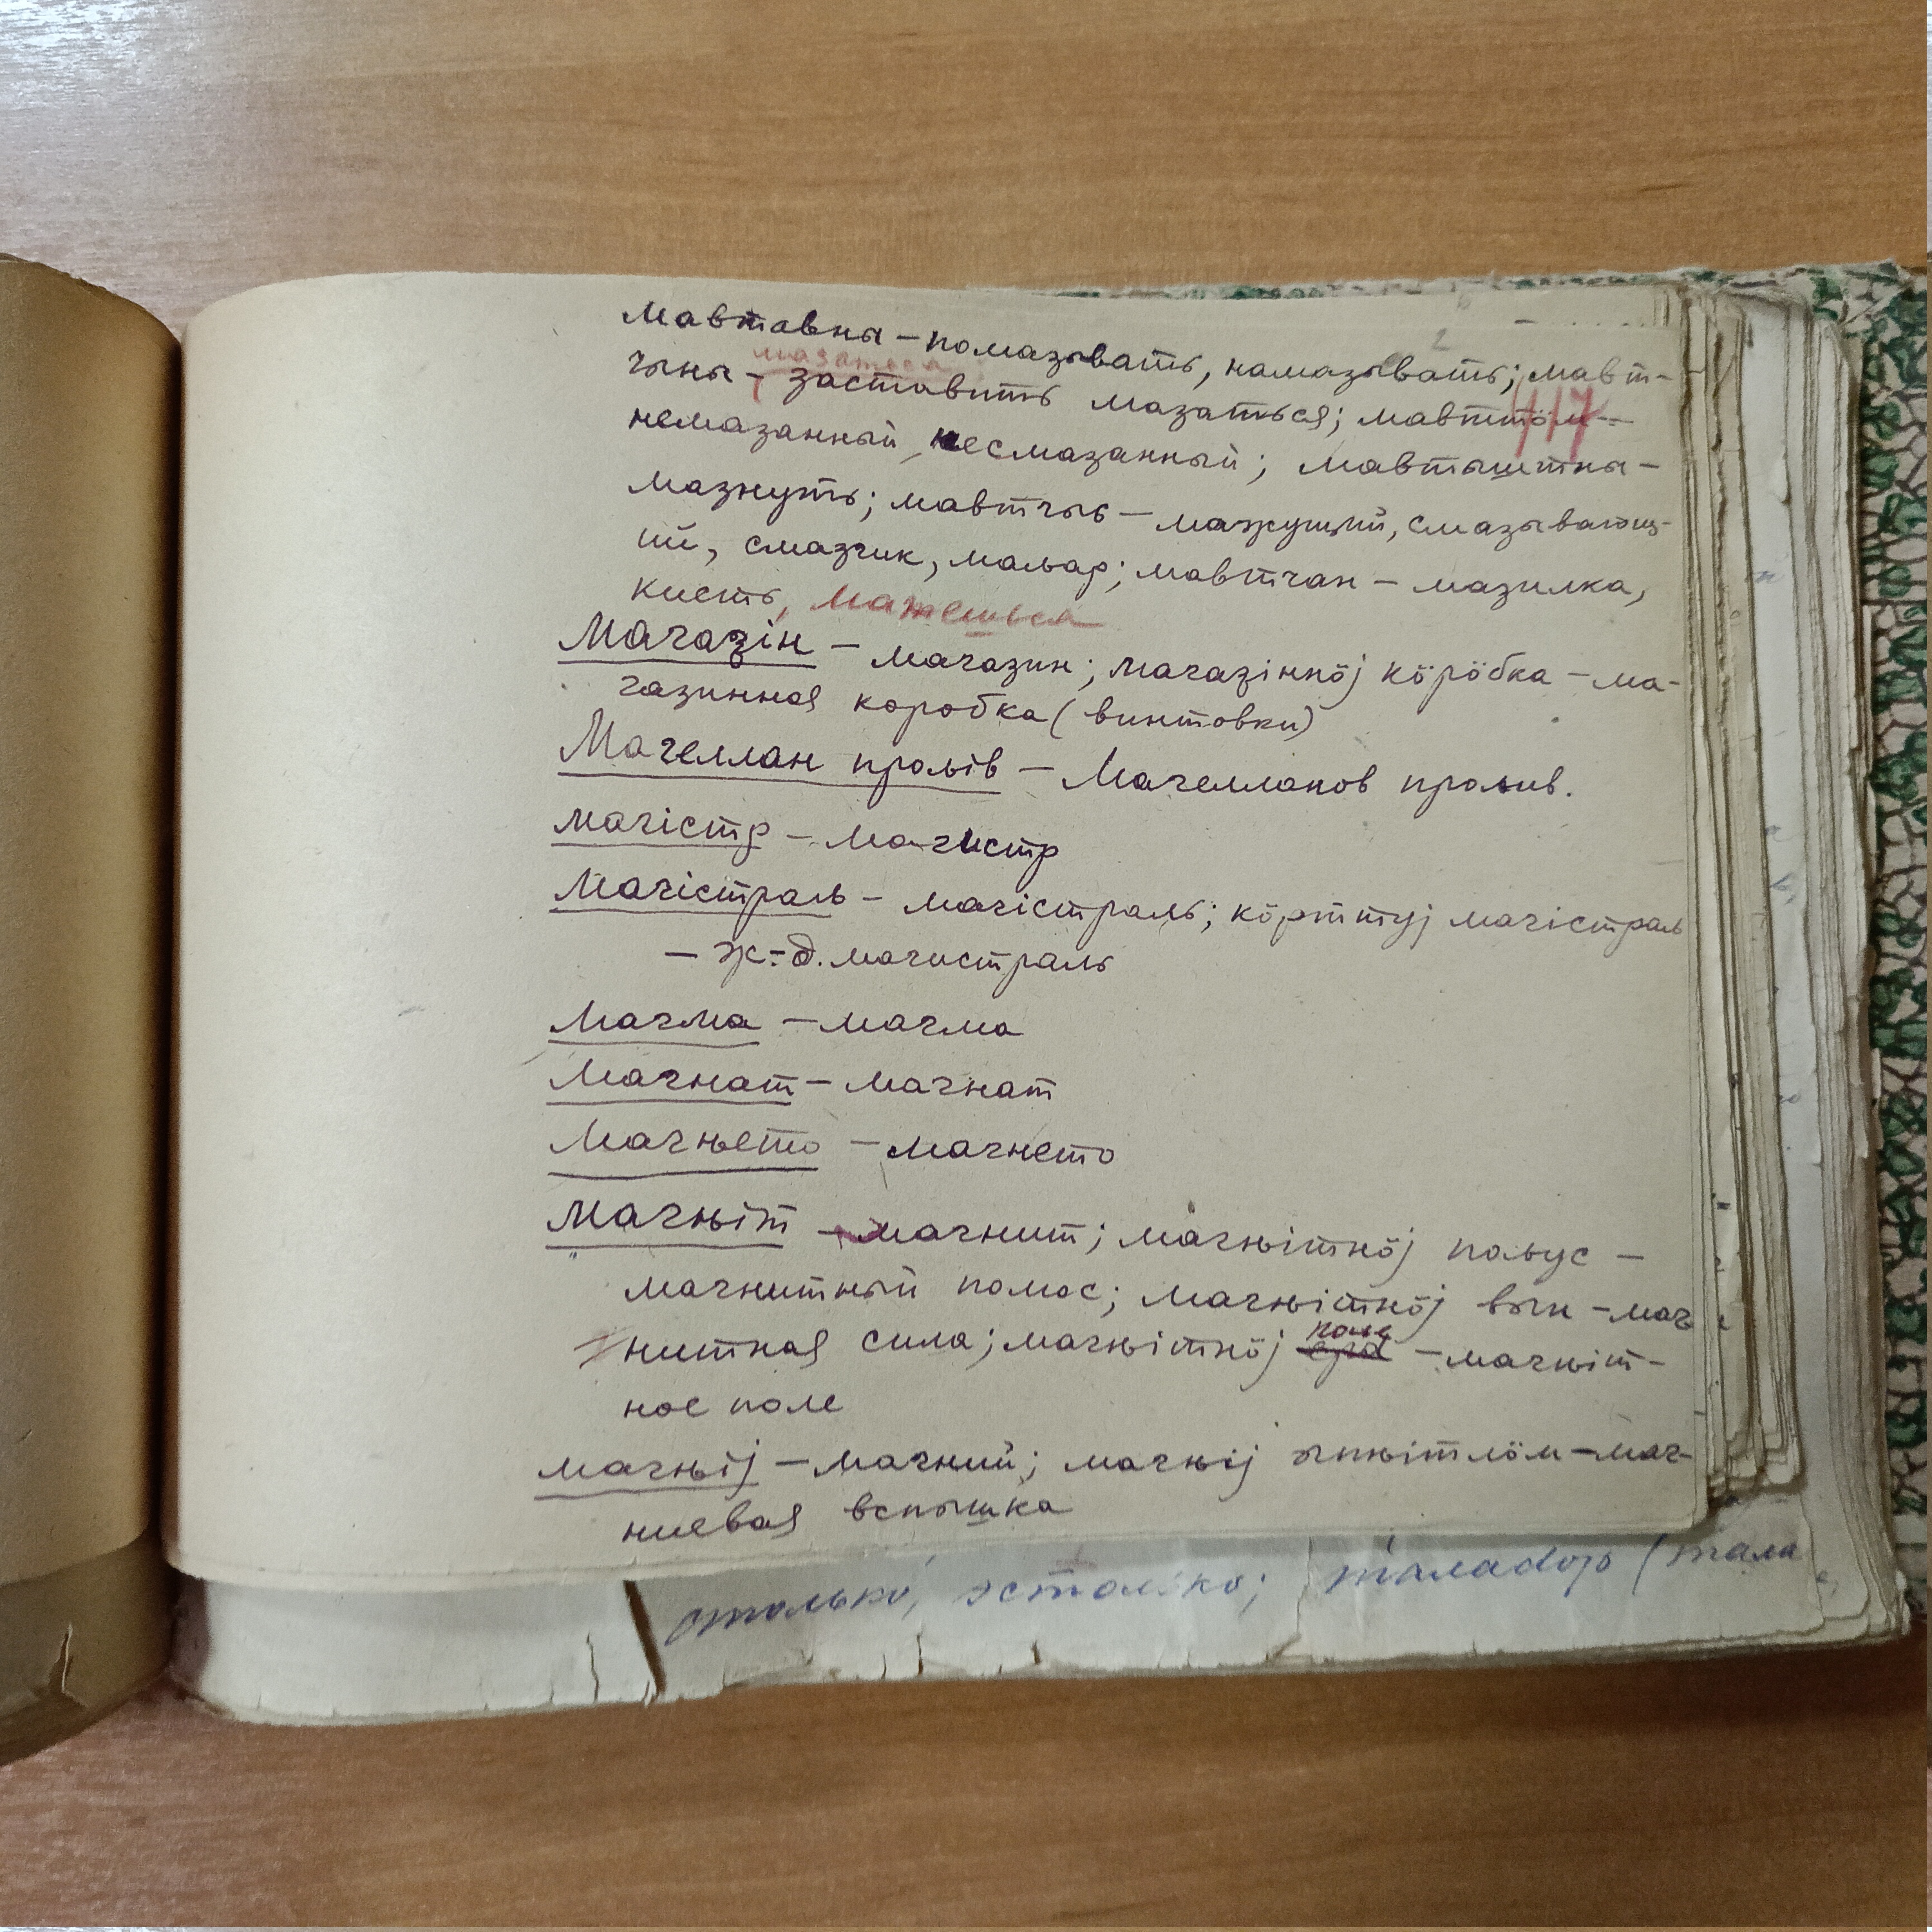 мавтавны – помазывать, намазывать; мавт-
мазаться
чыны – заставить мазаться; мавттӧм –
117
немазанный, несмазанный; мавтыштны –
мазнуть; мавтчыԍ – мажущий, смазывающ-
ий, смазчик, маԉар; мавтчан – мазилка,
кисть, мажешься
Магаԅін – магазин; магаԅіннӧј кӧрӧбка – ма-
газинная коробка (винтовки)
Магеллан проԉів – Магелланов пролив.
магістр – магистр
Магістраԉ – магістраль; кӧрттуј магістраԉ
– ж.-д. магистраль
Магма – магма
Магнат – магнат
Магԋето – магнето
Магԋіт – магнит; магԋітнӧј поԉус –
магнитный полюс; магԋітнӧј вын – маг-
нитная сила; магԋітнӧј поԉе – магԋіт-
ное поле
магԋіј – магний; магԋіј ыпԋітлӧм – маг-
ниевая вспышка
столько, эстолько; таладор (тала